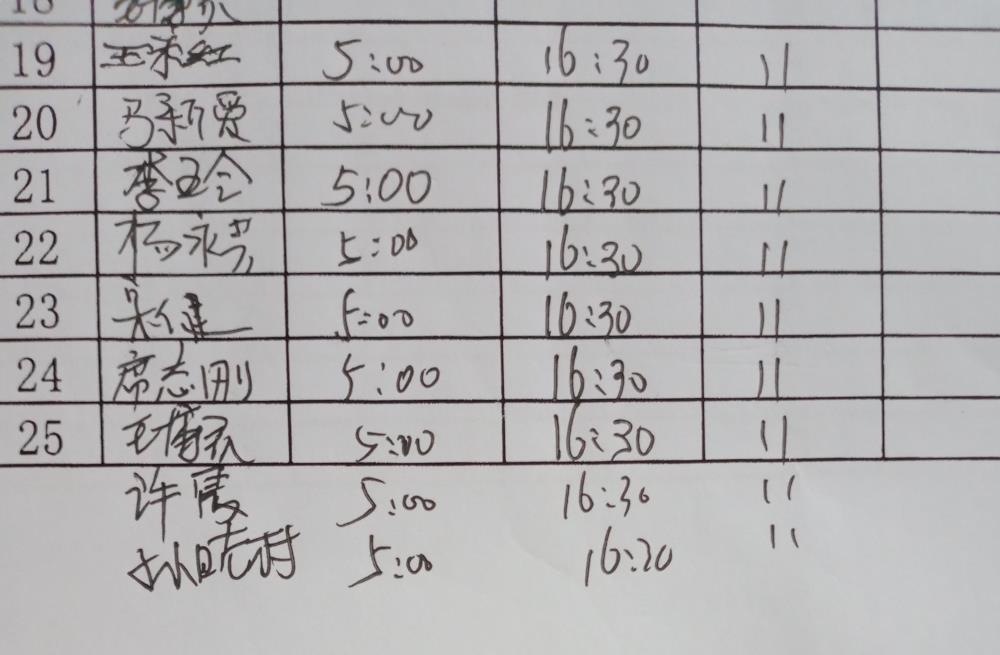 18
19 王永红 5:00 16:30 11
20 马新爱 5:00 16:30 11
21 李玉令 5:00 16:30 11
22 杨永芳 5:00 16:30 11
23 吴健 5:00 16:30 11
24 席志刚 5:00 16:30 11
25 5:00 16:30 11
许霞 5:00 16:30 11
孙晓村 5:00 16:30 11